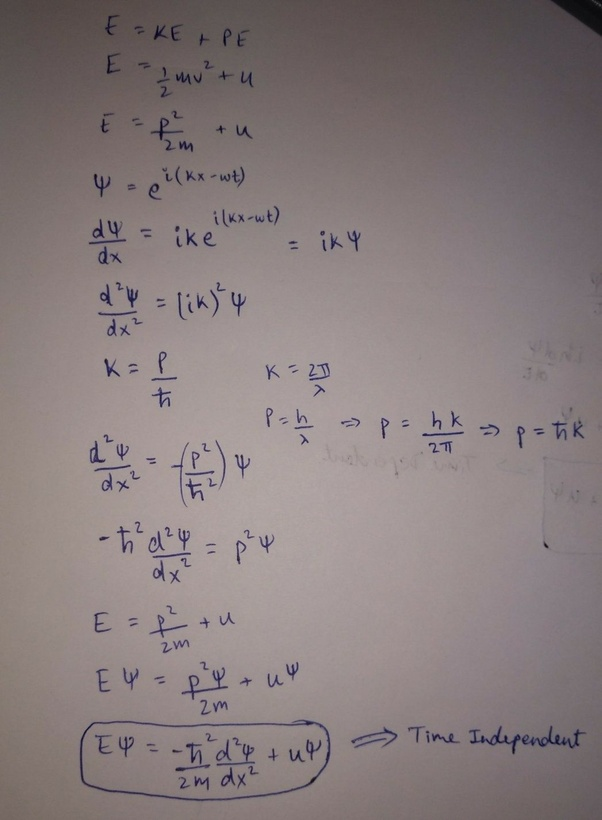 E = KE + PE
E = 1/2 mv² + u
E = p²/2m + u
Ψ = e^i(kx-wt)
dΨ/dx = ike^i(kx-wt) = ikΨ
d²Ψ/dx² = (ik)²Ψ
K = P/ħ K = 2π/λ
P = h/λ ⇒ p = hk/2π ⇒ p = ħk
d²Ψ/dx² = -(p²/ħ²)Ψ
-ħ² d²Ψ/dx² = p²Ψ
E = p²/2m + u
EΨ = p²Ψ/2m + uΨ
EΨ = -ħ²/2m d²Ψ/dx² + uΨ ⇒ Time Independent